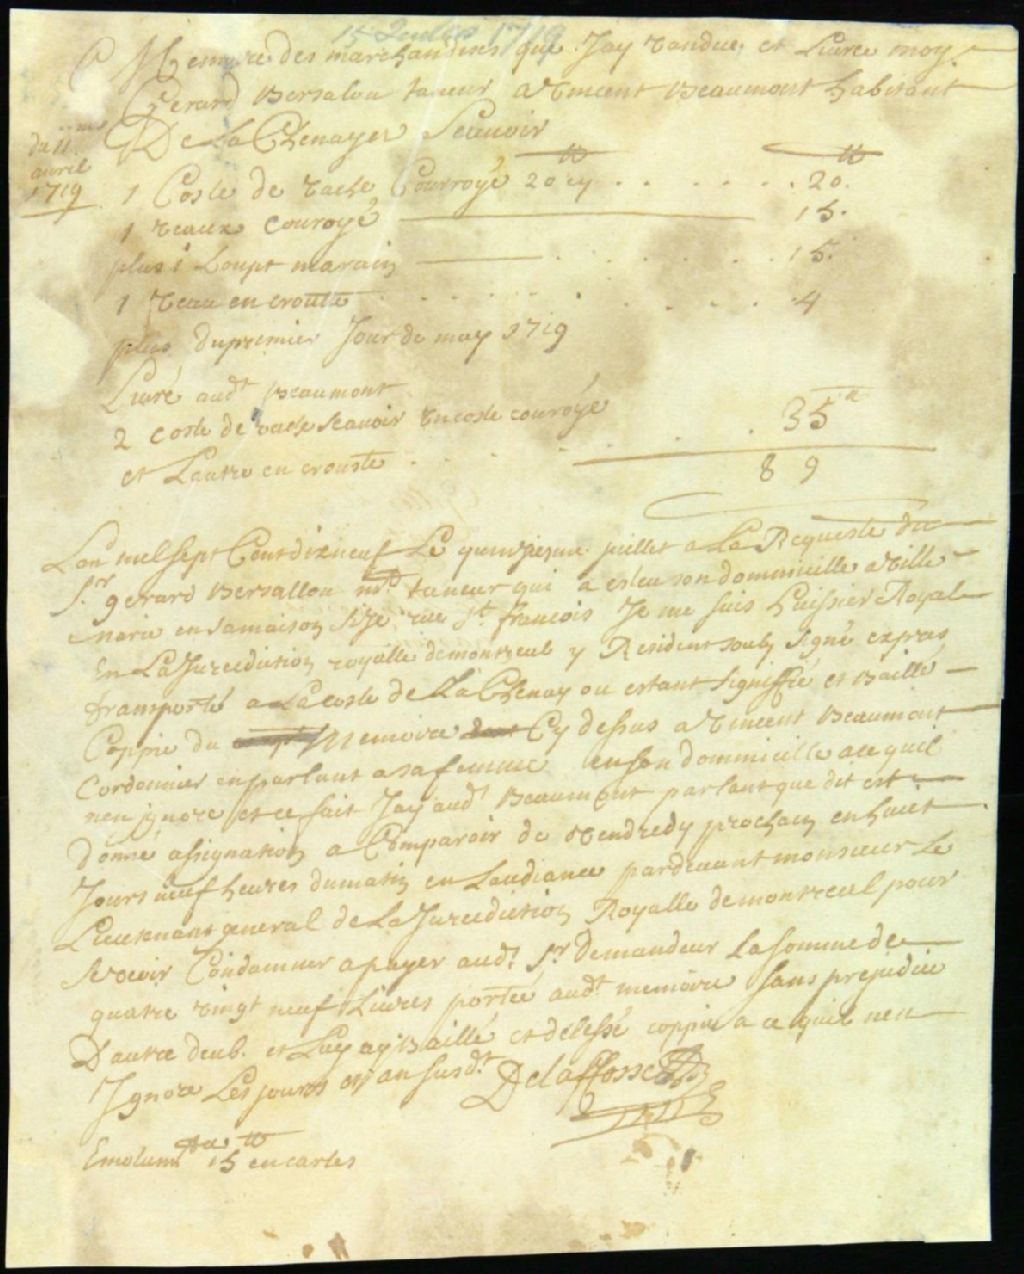 15 Juillet 1719
Memoire des marchandises que Jay vandue et Livré moy
Gerard Bersalou taneur a Vincent Beaumont habitant
De La Chenayes Scauoir
du 11
auril
1719
1 Coste de vache Courroyé 20 cy . . . . . . . 20.
1 veaux couroyé 15.
plus 1 Loupt marain . . . . . 15.
1 veau en croutte . . . . . . 4
plus du premier Jour de may 1719
Liuré audt Beaumont
2 coste de vache scauoir un coste couroyé
et Lautre en crouste . . . . 35
89
Lan mil sept Cent dix neuf Le quinziesme juillet a La Requeste du
Sr gerard Bersallou md taneur qui a esleu son dommicille a ville
marie en sa maison size rue St francois Je me suis huissier Royal
En La Jurediction royalle de montreal y Resident soubs signé expres
transporté a La coste de La Chenay ou estant signiffié et baillé
Coppie du memoire Cy dessus a Vincent Beaumont
Cordonnier en parlant a sa femme en son dommicille a ce quil
nen jgnore et ce fait Jay audt Beaumont parlant que dit est
donné assignation a Comparoir de Vendredy prochain en huit
Jours neuf heures du matin en Laudiance pardeuant monsieur Le
Lieutenant general de La Jurediction Royalle de montreal pour
se voir Condamner a payer audt Sr Demandeur La somme de
quatre vingt neuf Liures portée audt memoire sans prejudice
D'autre deub. et Luy ay Baillé et delessé coppie a ce quil nen
Jgnore Les jours et an susdt Delafosse
Emolumt 15 en cartes